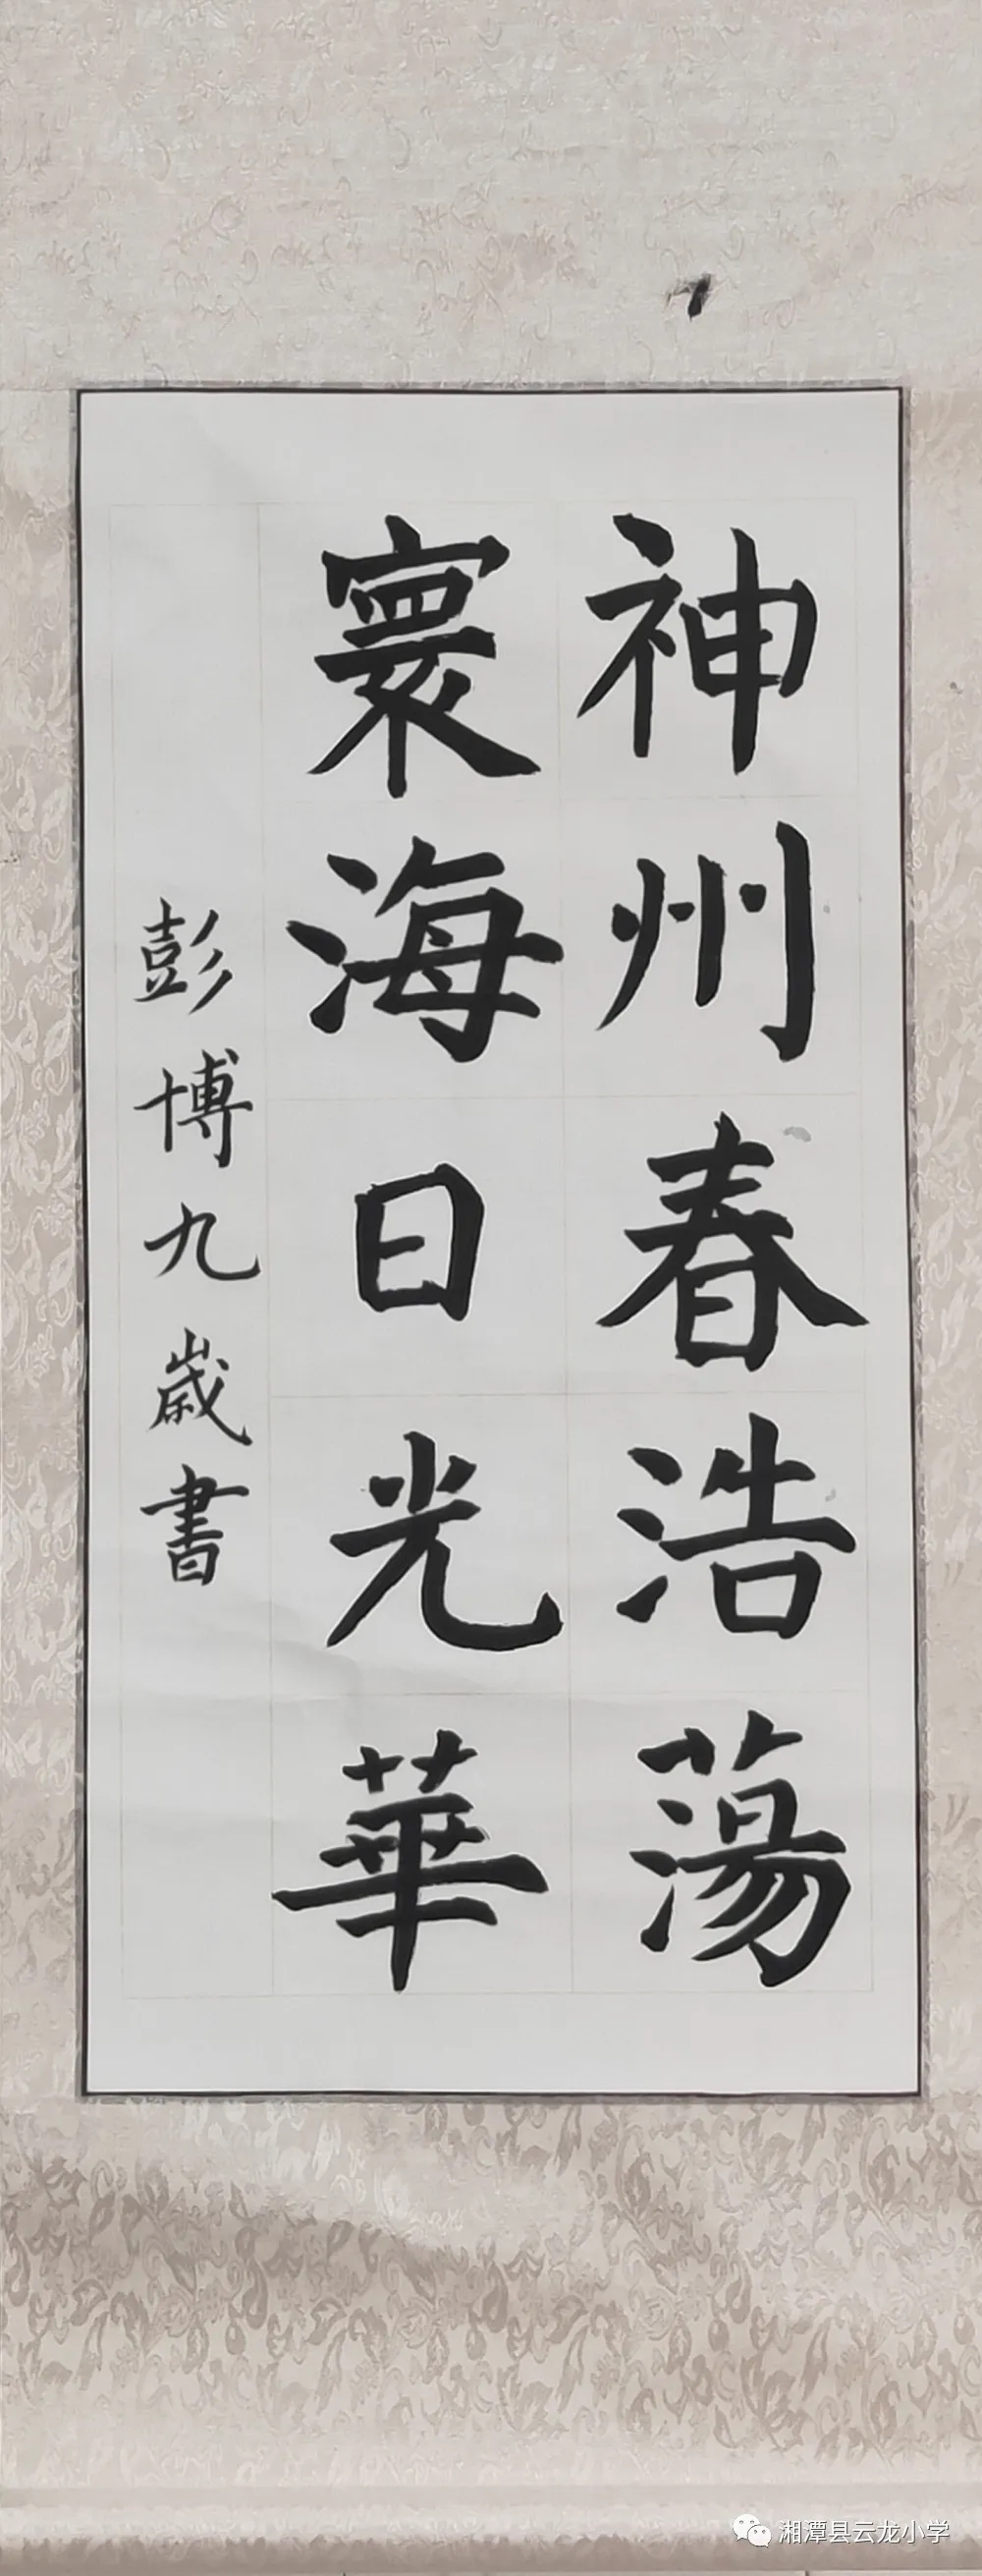 神州春浩蕩
寰海日光華
彭博九歲書
湘潭县云龙小学